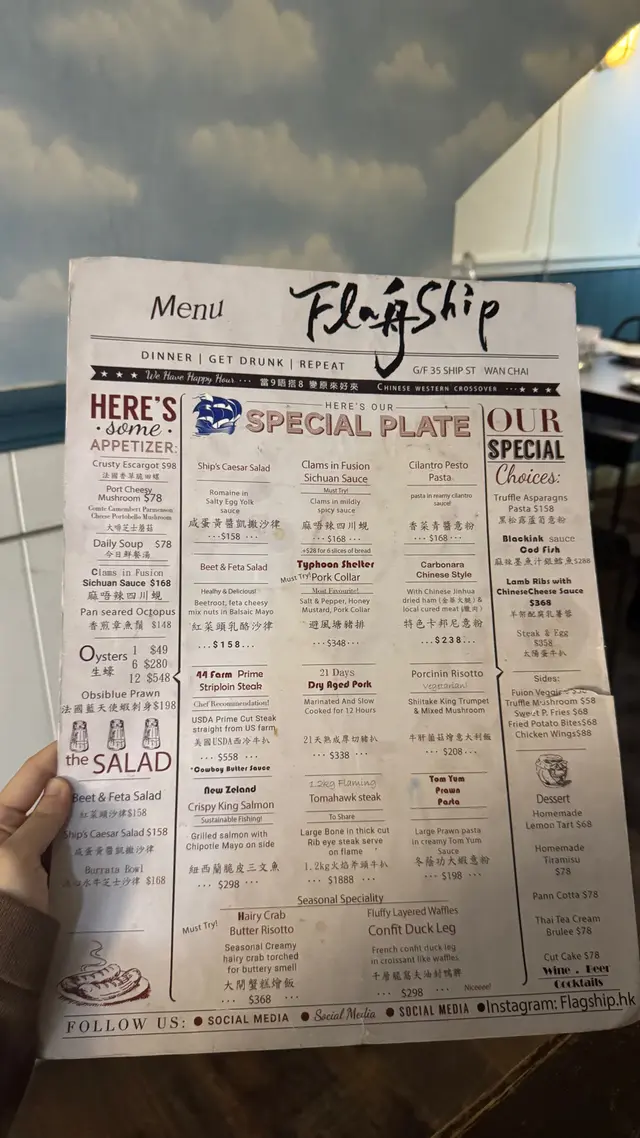 Menu
FlagShip
DINNER | GET DRUNK | REPEAT
G/F 35 SHIP ST WAN CHAI
We Have Happy Hour ··· 當9唔搭8 變原來好來
CHINESE WESTERN CROSSOVER
HERE'S
some
APPETIZER:
Crusty Escargot $98
法國香草脆田螺
Port Cheesy
Mushroom $78
Comte Camembert Parmesan
Cheese Portobello Mushroom
大啡芝士蘑菇
Daily Soup $78
今日鮮餐湯
Clams in Fusion
Sichuan Sauce $168
麻唔辣四川蜆
Pan seared Octopus
香煎章魚鬚 $148
Oysters
生蠔
1 $49
6 $280
12 $548
Obsiblue Prawn
法國藍天使蝦刺身$198
the SALAD
Beet & Feta Salad
紅菜頭沙律$158
Ship's Caesar Salad $158
咸蛋黃醬凱撒沙律
Burrata Bowl
水牛芝士沙律 $168
HERE'S OUR
SPECIAL PLATE
Ship's Caesar Salad
Romaine in
Salty Egg Yolk
sauce
咸蛋黃醬凱撒沙律
$158
Clams in Fusion
Sichuan Sauce
Must Try!
Clams in mildly
spicy sauce
麻唔辣四川蜆
$168
+$28 for 6 slices of bread
Cilantro Pesto
Pasta
pasta in creamy cilantro
sauce!
香菜青醬意粉
$168
Beet & Feta Salad
Healhy & Delicious!
Beetroot, feta cheesy
mix nuts in Balsaic Mayo
紅菜頭乳酪沙律
...$158...
Typhoon Shelter
Must Try! Pork Collar
Most Favourite!
Salt & Pepper, Honey
Mustard, Pork Collar
避風塘豬排
···$348···
Carbonara
Chinese Style
With Chinese Jinhua
dried ham (金華火腿) &
local cured meat (臘肉)
特色卡邦尼意粉
...$238...
44 Farm Prime
Striploin Steak
Chef Recommendation!
USDA Prime Cut Steak
straight from US farm
美國USDA西冷牛扒
$558
*Cowboy Butter Sauce
21 Days
Dry Aged Pork
Marinated And Slow
Cooked for 12 Hours
21天熟成厚切豬扒
$338
Porcinin Risotto
vegetarian!
Shiitake King Trumpet
& Mixed Mushroom
牛肝蘑菇意大利飯
$208
New Zeland
Crispy King Salmon
Sustainable Fishing!
Grilled salmon with
Chipotle Mayo on side
紐西蘭脆皮三文魚
$298
1.2kg Flaming
Tomahawk steak
To Share
Large Bone in thick cut
Rib eye steak serve
on flame
1.2kg火焰斧頭牛扒
$1888
Tom Yum
Prawn
Pasta
Large Prawn pasta
in creamy Tom Yum
Sauce
冬蔭功大蝦意粉
$198
Seasonal Speciality
Must Try!
Hairy Crab
Butter Risotto
Seasonal Creamy
hairy crab torched
for buttery smell
大閘蟹糕燴飯
$368
Fluffy Layered Waffles
Confit Duck Leg
French confit duck leg
in croissant like waffles
千層龍窩夫油封鴨髀
$298
Niceeee!
OUR
SPECIAL
Choices:
Truffle Asparagns
Pasta $158
黑松露蘆筍意粉
Blackink sauce
Cod Fish
麻辣墨魚汁銀鱈魚$288
Lamb Ribs with
ChineseCheese Sauce
$368
羊架配腐乳薯蓉
Steak & Egg
$358
太陽蛋牛扒
Sides:
Fuion Veggie
Truffle Mushroom $58
Sweet P. Fries $68
Fried Potato Bites$68
Chicken Wings$88
Dessert
Homemade
Lemon Tart $68
Homemade
Tiramisu
$78
Pann Cotta $78
Thai Tea Cream
Brulee $78
Cut Cake $78
Wine . Beer
Cocktails
FOLLOW US: ● SOCIAL MEDIA ● Social Media ● SOCIAL MEDIA ●Instagram: Flagship.hk